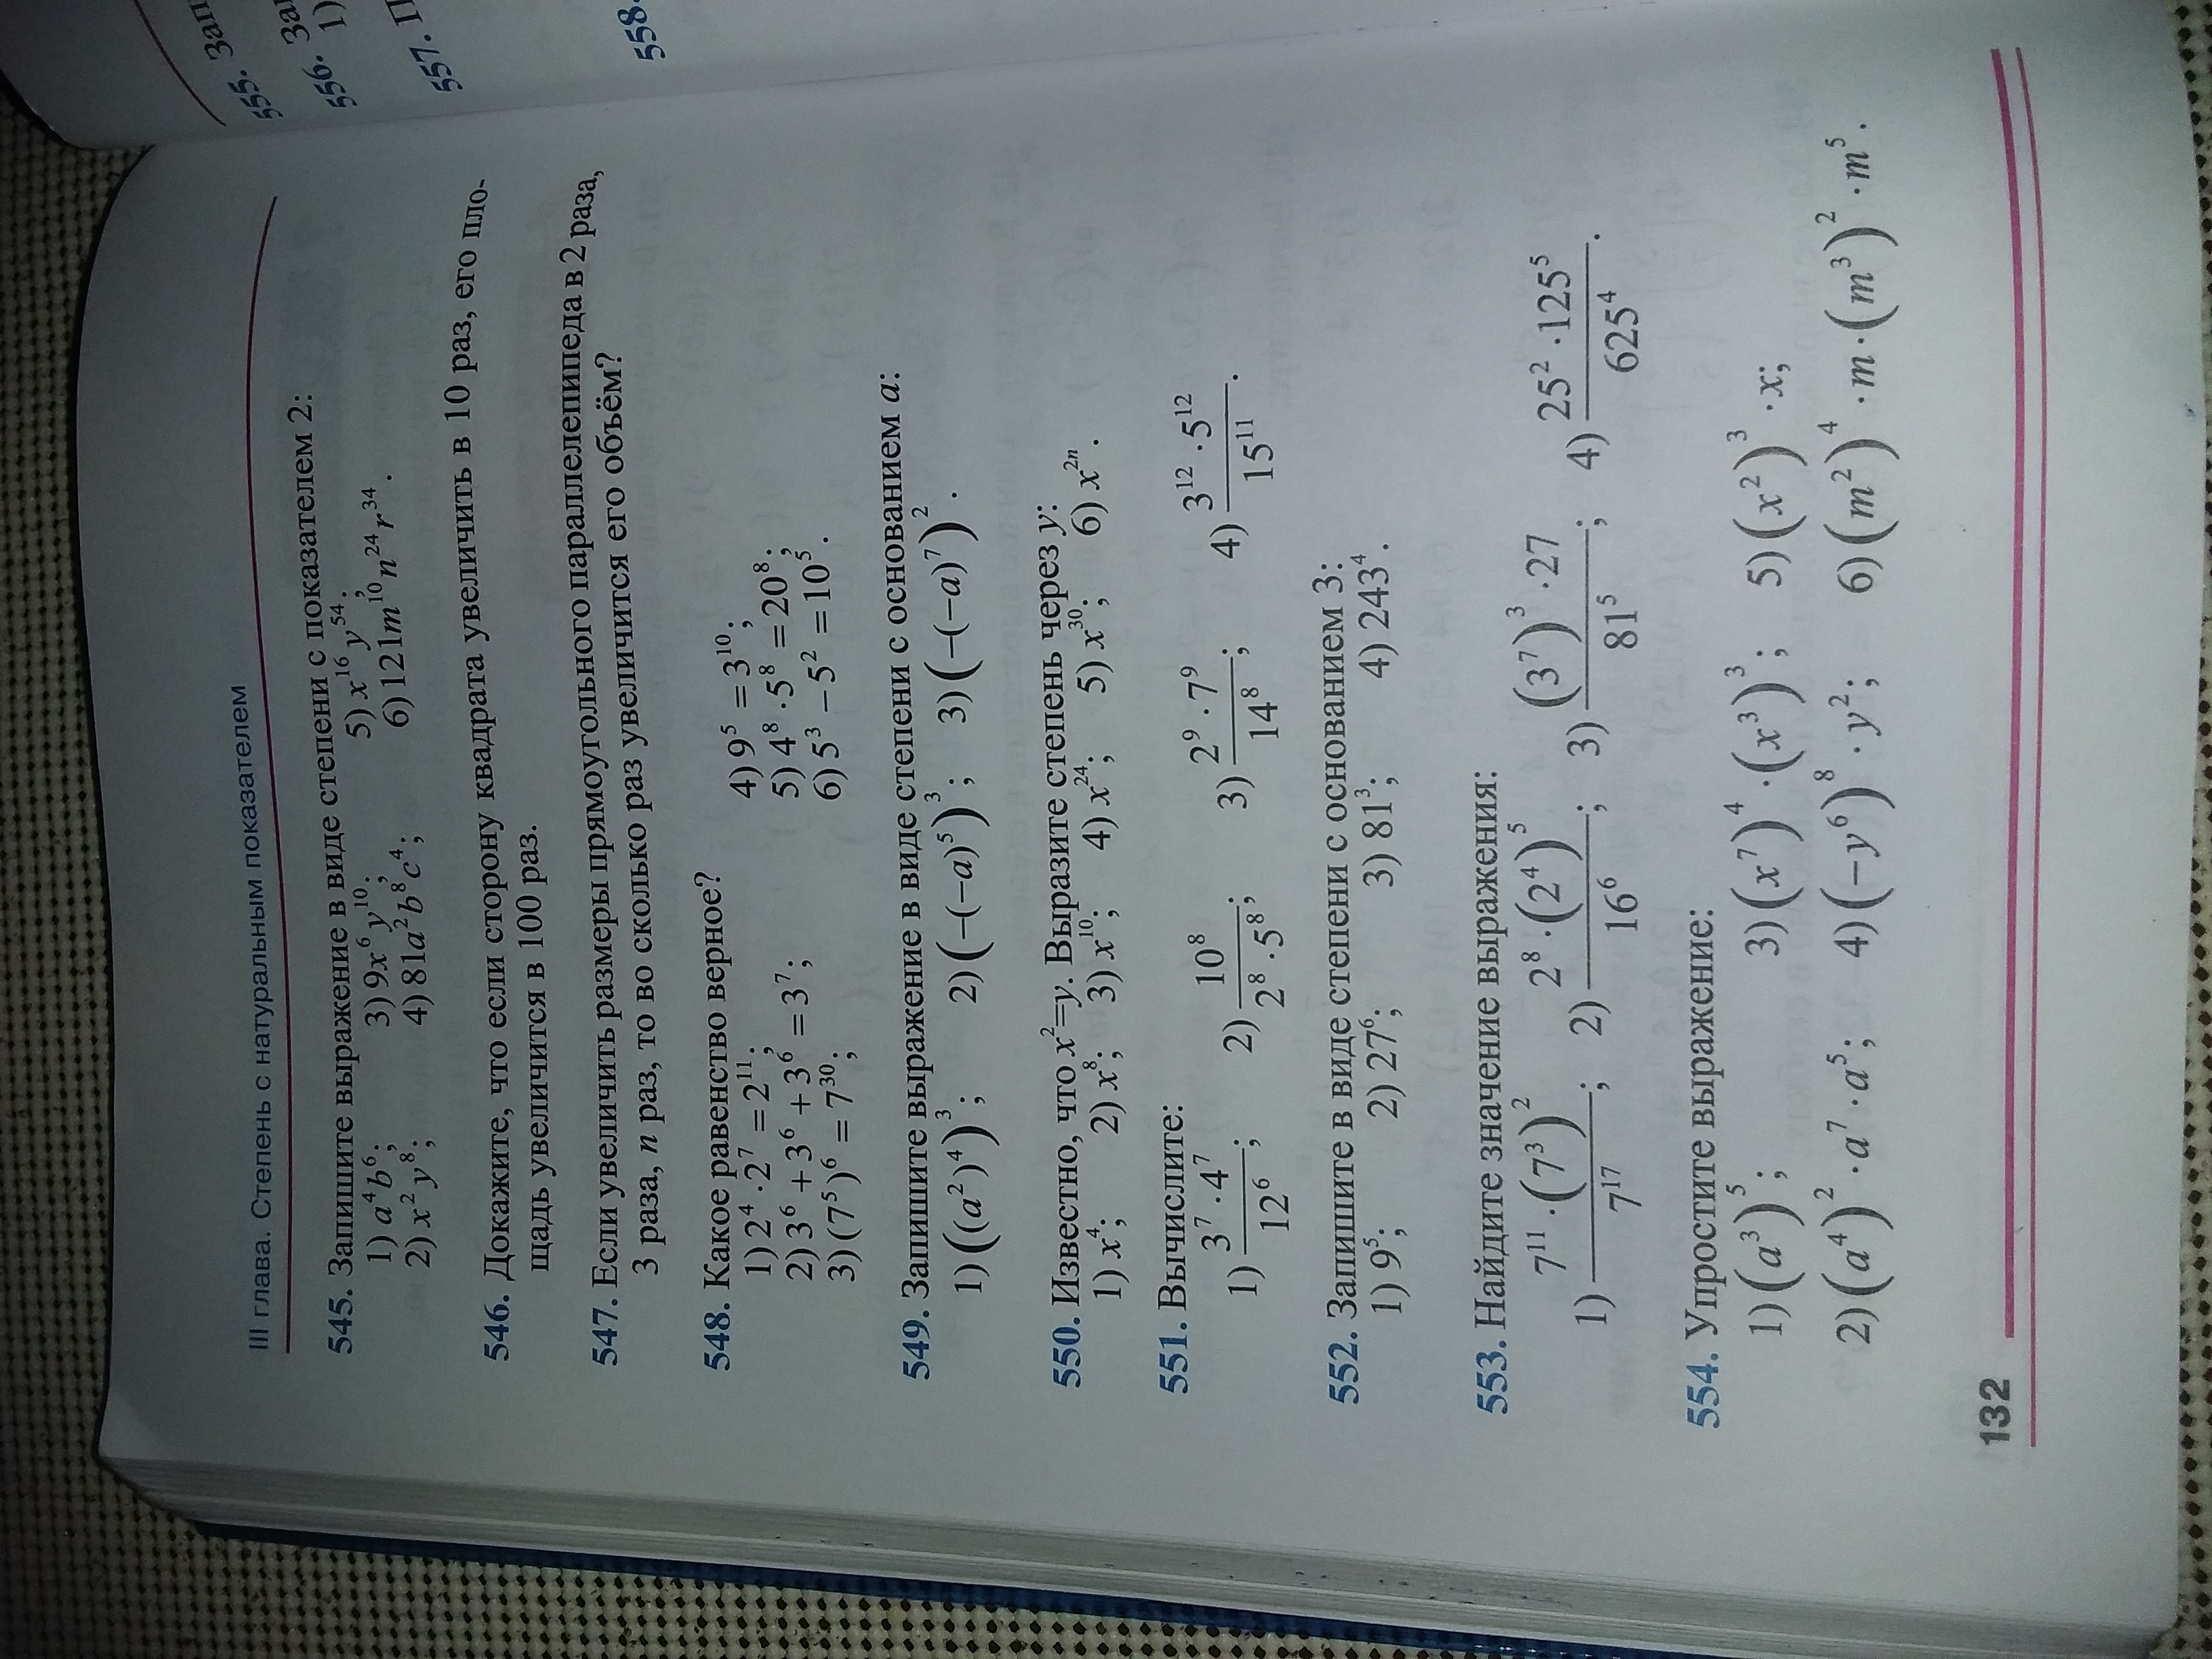 III глава. Степень с натуральным показателем
545. Запишите выражение в виде степени с показателем 2:
1) a⁴b⁶; 3) 9x⁶y¹⁰; 5) x¹⁶y⁵⁴;
2) x²y⁸; 4) 81a²b⁸c⁴; 6) 121m¹⁰n²⁴r³⁴.
546. Докажите, что если сторону квадрата увеличить в 10 раз, его пло-
щадь увеличится в 100 раз.
547. Если увеличить размеры прямоугольного параллелепипеда в 2 раза,
3 раза, n раз, то во сколько раз увеличится его объём?
548. Какое равенство верное?
1) 2⁴·2⁷=2¹¹; 4) 9⁵=3¹⁰;
2) 3⁶+3⁶+3⁶=3⁷; 5) 4⁸·5⁸=20⁸;
3) (7⁵)⁶=7³⁰; 6) 5³−5²=10⁵.
549. Запишите выражение в виде степени с основанием a:
1) ((a²)⁴)³; 2) (−(−a)⁵)³; 3) (−(−a)⁷)².
550. Известно, что x²=y. Выразите степень через y:
1) x⁴; 2) x⁸; 3) x¹⁰; 4) x²⁴; 5) x³⁰; 6) x²ⁿ.
551. Вычислите:
1) 3⁷·4⁷/12⁶; 2) 10⁸/2⁸·5⁸; 3) 2⁹·7⁹/14⁸; 4) 3¹²·5¹²/15¹¹.
552. Запишите в виде степени с основанием 3:
1) 9⁵; 2) 27⁶; 3) 81³; 4) 243⁴.
553. Найдите значение выражения:
1) 7¹¹·(7³)²/7¹⁷; 2) 2⁸·(2⁴)⁵/16⁶; 3) (3⁷)³·27/81⁵; 4) 25²·125⁵/625⁴.
554. Упростите выражение:
1) (a³)⁵; 3) (x⁷)⁴·(x³)³; 5) (x²)³·x;
2) (a⁴)²·a⁷·a⁵; 4) (−y⁶)⁸·y²; 6) (m²)⁴·m·(m³)²·m⁵.
132
555. Зап
556. За
1)
557.
558.